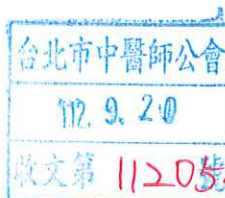 台北市中醫師公會
112. 9. 20
收文第 11205 號